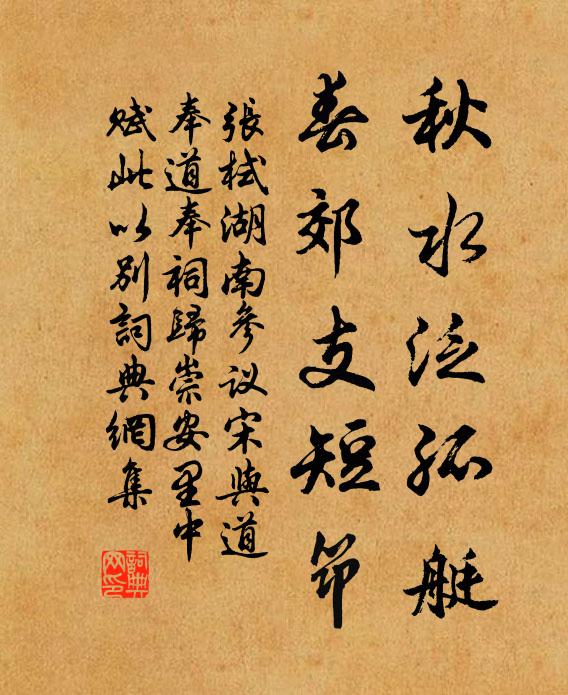 秋水泛孤艇
春郊支短筇
張栻湖南參议宋與道
奉道奉祠歸崇安里中
賦此以別詞典網集
詞典网印